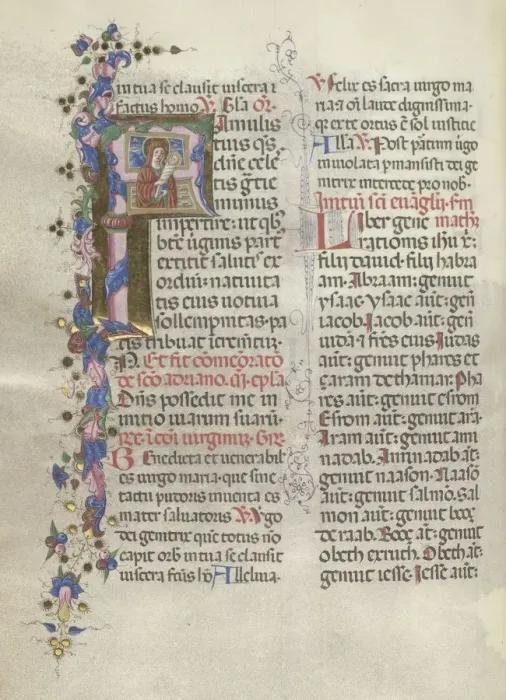 in tua se clausit uiscera i
factus homo. V. Gl̄a. Or̄.
Famulis
tuis qs̄.
dn̄e cele
tis gr̄e
munus
impertire: ut qb̄
bt̄e uirginis part
extitit salutis ex
ordiū: natiuita
tis eius uotiua
sollempnitas. pa
cis tribuat icremtū.
Et fit com̄eorato
de sc̄o adriano. ep̄la
Dn̄s possedit me in
initio uiarum suarū
uirginū. Gr̄e
Benedicta et uenerabil
es uirgo maria. que sine
tactu pudoris inuenta es
mater saluatoris V. Vgo
dei genitrix que totus nō
capit orb in tua se clausit
uiscera fact̄us hō Alleluia.
V. Felix es sacra uirgo ma
ria & oī laude dignissima.
q̄ ex te ortus ē sol iustitie
Alla V. Post partum uirgo
inuiolata pmansisti dei ge
nitrix intercede pro nob.
Initiū sc̄i euāgl̄ij. s̄m
Liber gene math̄
rationis ih̄u xp̄ī:
filij dauid. filij habra
am. Abraam: genuit
ysaac. ysaac aūt: genū
iacob. Jacob aūt: genū
iuda & fr̄es eius. Judas
aūt: genuit phares et
zaram de thamar. Pha
res aūt: genuit esrom
Esrom aūt: genuit arā.
Aram aūt: genuit ami
nadab. Aminadab aūt:
genuit naason. Naasō
aūt: genuit salmō. Sal
mon aūt: genuit booz
de raab. Booz aūt: genuit
obeth ex ruth. Obeth aūt:
genuit iesse. Jesse aūt: